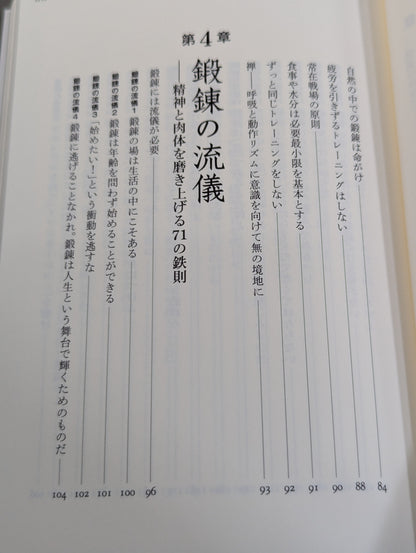 自然の中での鍛錬は命がけ 84
疲労を引きずるトレーニングはしない 88
常在戦場の原則 90
食事や水分は必要最小限を基本とする 91
ずっと同じトレーニングをしない 92
禅――呼吸と動作リズムに意識を向けて無の境地に 93
第4章
鍛錬の流儀
――精神と肉体を磨き上げる71の鉄則
鍛錬には流儀が必要 96
鍛錬の流儀1 鍛錬の場は生活の中にこそある 100
鍛錬の流儀2 鍛錬は年齢を問わず始めることができる 101
鍛錬の流儀3 「始めたい!」という衝動を逃すな 102
鍛錬の流儀4 鍛錬に逃げることなかれ。鍛錬は人生という舞台で輝くためのものだ 104